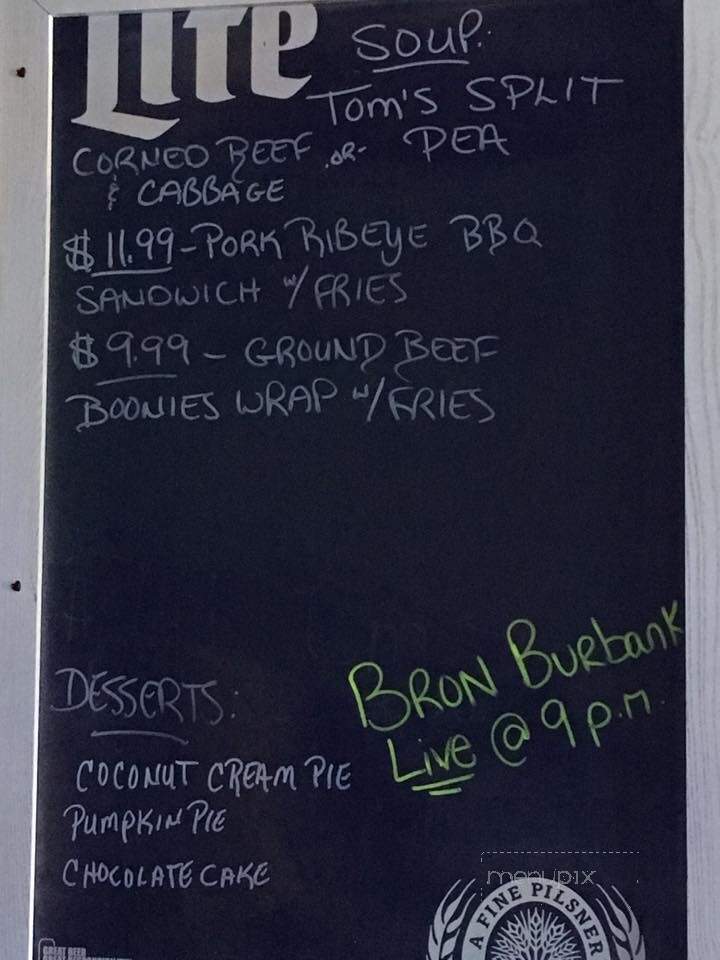 Lite
SOUP:
TOM'S SPLIT
CORNED BEEF -OR- PEA
& CABBAGE
$11.99-PORK RIBEYE BBQ
SANDWICH W/FRIES
$9.99 - GROUND BEEF
BOONIES WRAP W/FRIES
BRON BURBANK
LIVE @ 9 p.m.
DESSERTS:
COCONUT CREAM PIE
PUMPKIN PIE
CHOCOLATE CAKE
menupix
A FINE PILSNER
GREAT BEER